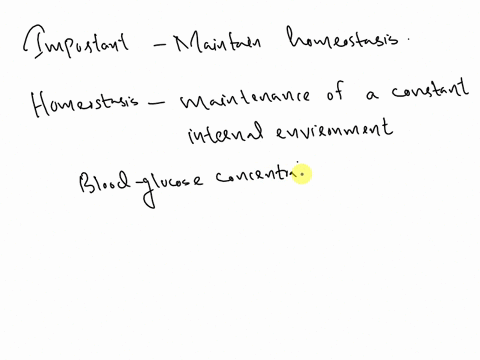 Important - Maintain homeostasis.
Homeostasis - maintenance of a constant
internal envienment
Blood-glucose concentrai